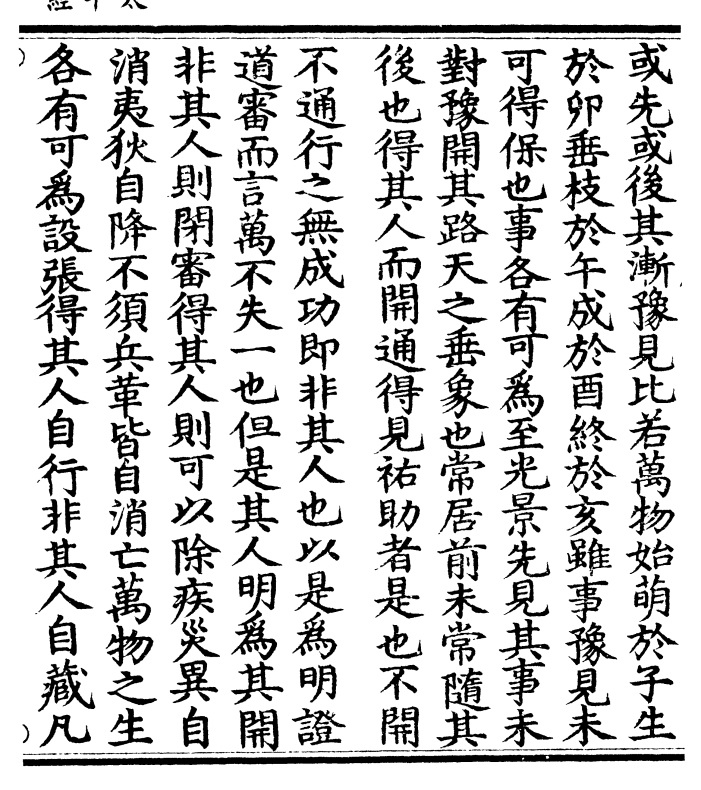 或先或後其漸豫見比若萬物始萌於子生
於卯垂枝於午成於酉終於亥雖事豫見未
可得保也事各有可為至光景先見其事未
對豫開其路天之垂象也常居前未常隨其
後也得其人而開通得見祐助者是也不開
不通行之無成功即非其人也以是為明證
道審而言萬不失一也但是其人明為其開
非其人則閉審得其人則可以除疾災異自
消夷狄自降不須兵革皆自消亡萬物之生
各有可為設張得其人自行非其人自藏凡